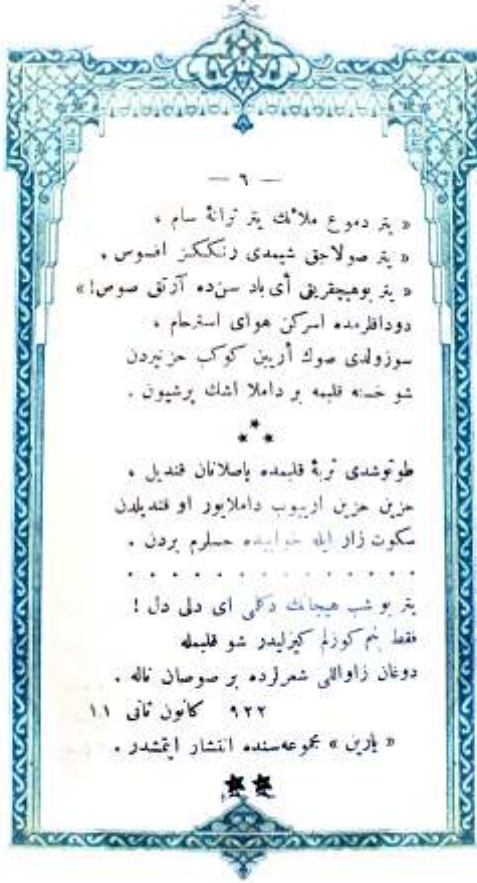 — ٦ —
« يتر دموع ملائك يتر ترانهٔ سام ،
« يتر صولاجق شيمدى رنككز افسوس ،
« يتر بوهيچقريق أى باد سن‌ده آرتق صوص! »
دوداقلرمده اسركن هواى استرحام ،
سوزولدى صوك أريين كوكب حزنيردن
شو خسته قلبمه بر داملا اشك پرشيون .
***
طوتوشدى تربهٔ قلبمده ياصلانان قنديل ،
حزين حزين اريوب داملايور او قنديلدن
سكوت زار ايله خوابيده حسلرم بردن .
. . . . . . . . . . . . . .
يتر بو شب هيجانك دكلى اى دلى دل !
فقط بنم كوزلم كيزليدر شو قلبمله
دوغان زاواللى شعرلرده بر صوصان ناله .
١١ كانون ثانى ٩٢٢
« يارين » مجموعه‌سنده انتشار ايتمشدر .